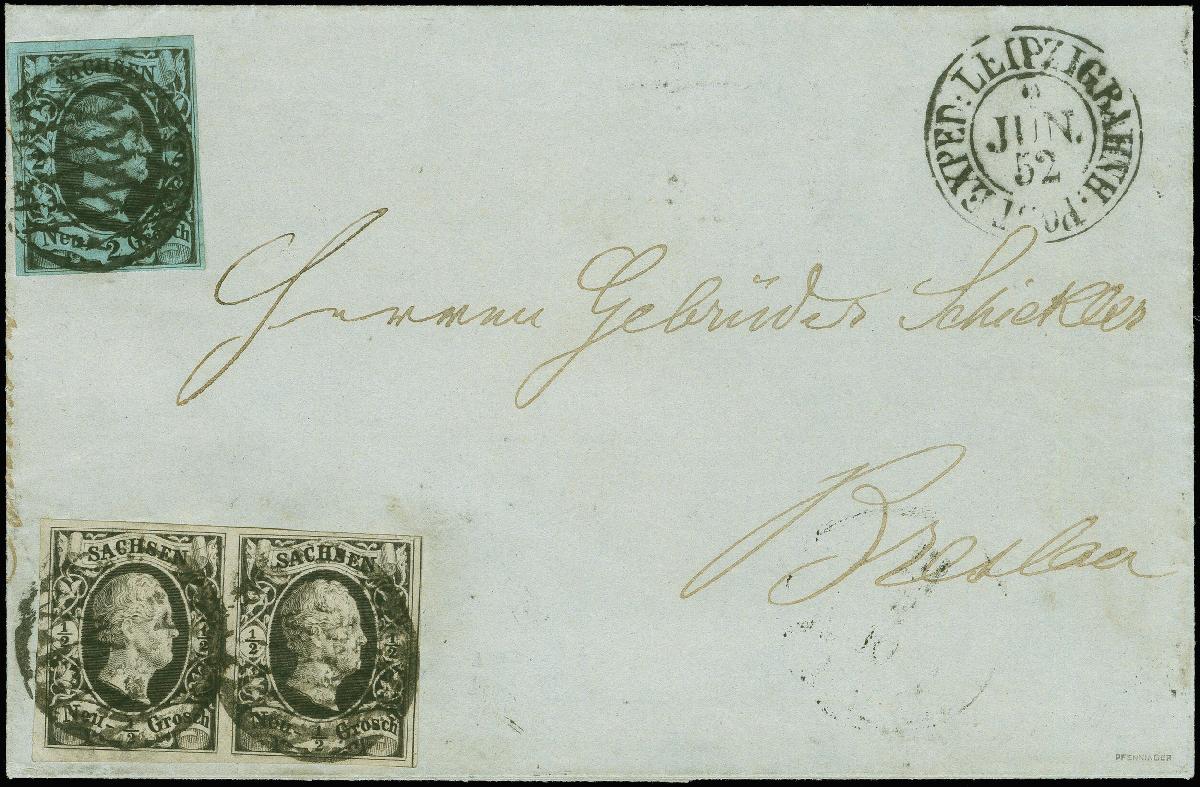 SACHSEN
2 2
Neu- 2 Grosch
POST EXPED: LEIPZIG BAHNH:
JUN.
52
Herren Gebrüder Schickler
Breslau
SACHSEN
½ ½
Neu- ½ Grosch
SACHSEN
½ ½
Neu- ½ Grosch
PFENNINGER